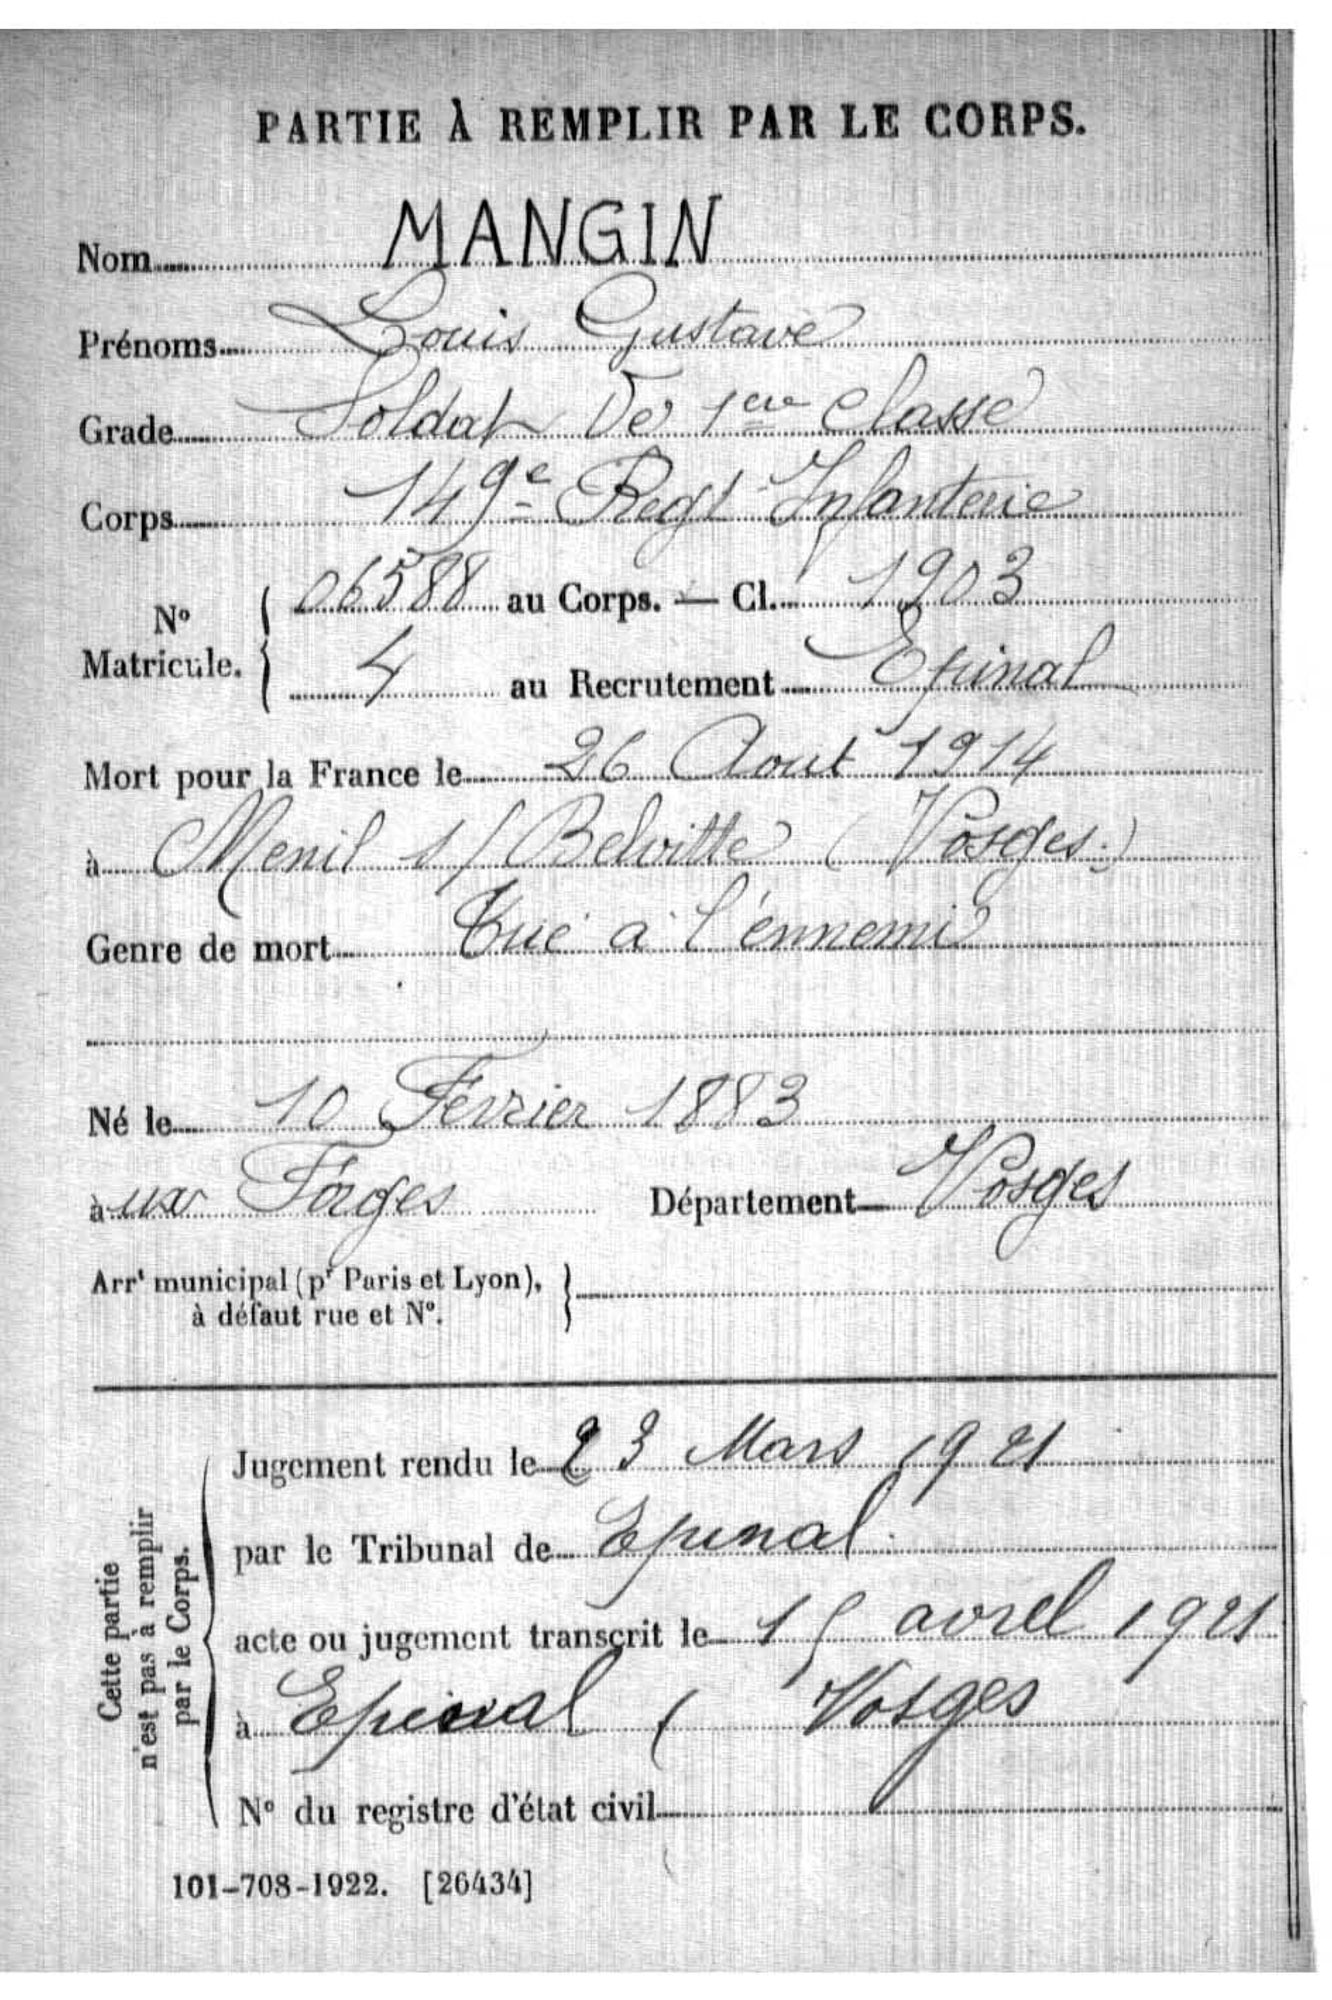 PARTIE À REMPLIR PAR LE CORPS.
Nom MANGIN
Prénoms Louis Gustave
Grade Soldat De 1ere Classe
Corps 149e Regt Infanterie
N° Matricule. 06588 au Corps. — Cl. 1903
4 au Recrutement Epinal
Mort pour la France le 26 Aout 1914
à Menil s/ Belvitte (Vosges.)
Genre de mort Tué à l'ennemi
Né le 10 Février 1883
aux Forges Département Vosges
Arrt municipal (pr Paris et Lyon),
à défaut rue et N°.
Cette partie
n'est pas à remplir
par le Corps.
Jugement rendu le 23 Mars 1921
par le Tribunal de Epinal
acte ou jugement transcrit le 15 avril 1921
à Epinal ( Vosges
N° du registre d'état civil
101-708-1922. [26434]